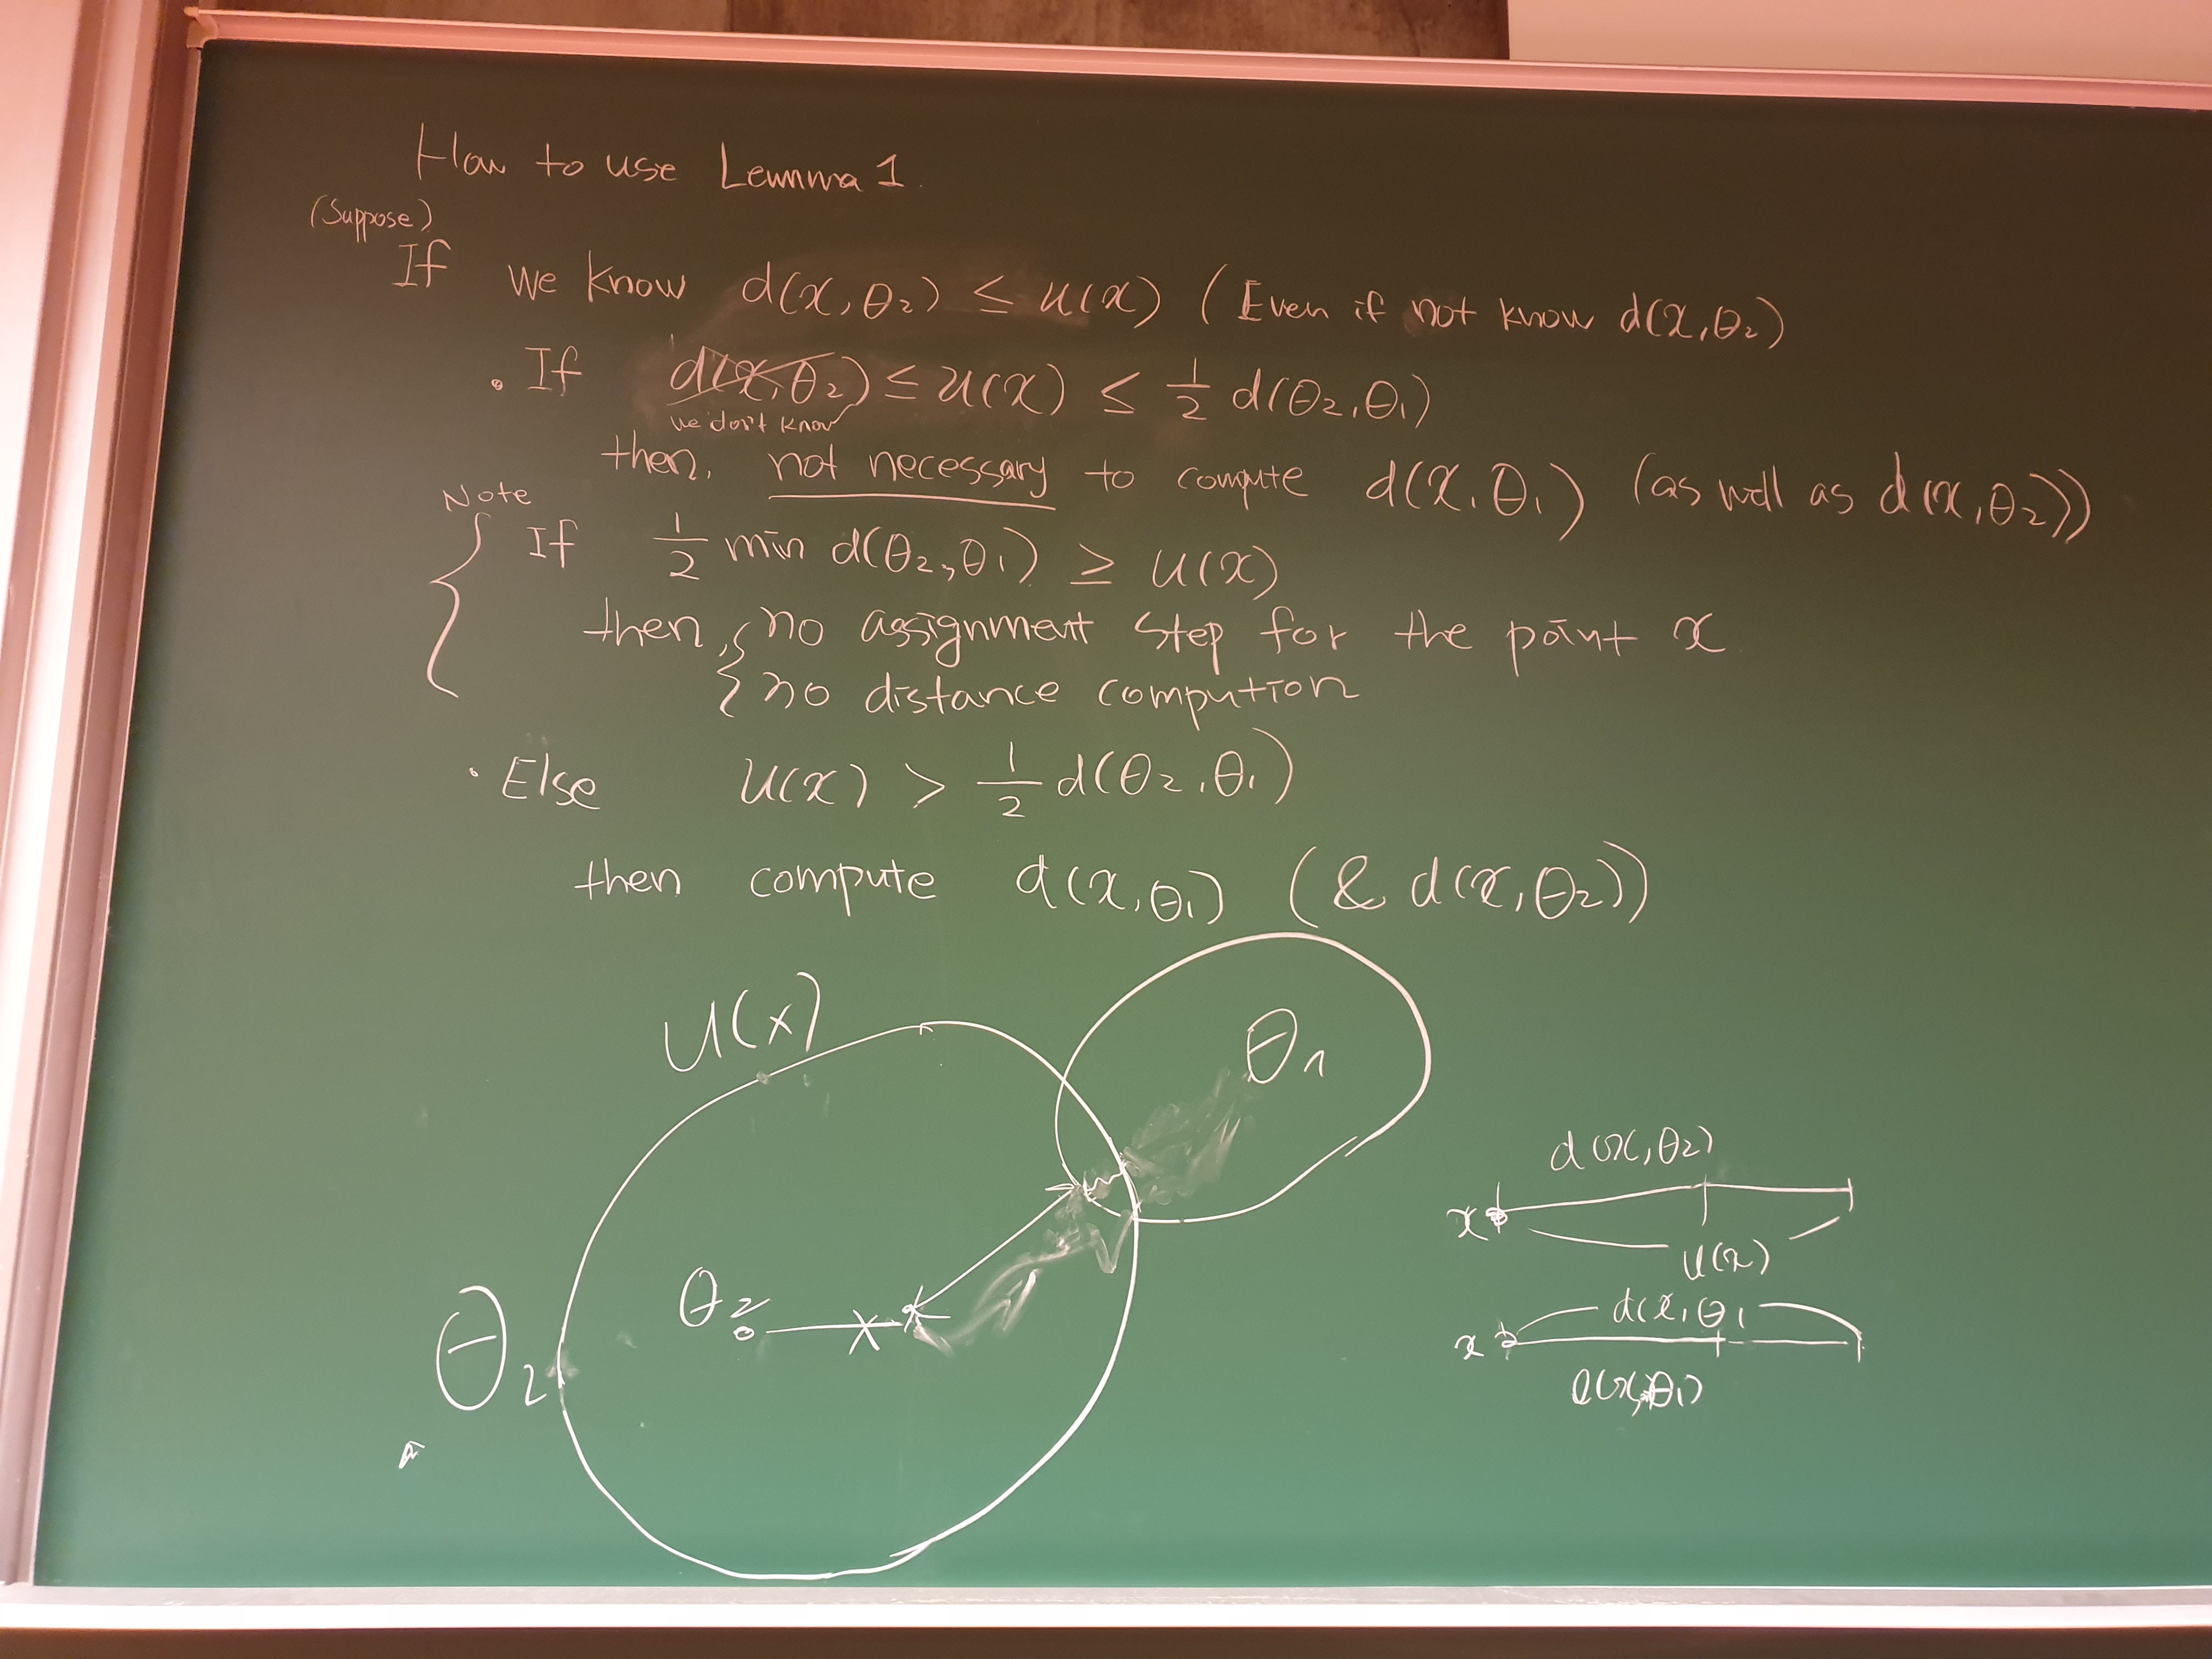 How to use Lemma 1.
(Suppose)
If we know d(x, θ₂) ≤ u(x) (Even if not know d(x, θ₂)
· If d(x, θ₂) ≤ u(x) ≤ 1/2 d(θ₂, θ₁)
we don't know
then, not necessary to compute d(x, θ₁) (as well as d(x, θ₂))
Note
If 1/2 min d(θ₂, θ₁) ≥ u(x)
then, { no assignment step for the point x
{ no distance compution
· Else u(x) > 1/2 d(θ₂, θ₁)
then compute d(x, θ₁) (& d(x, θ₂))
u(x)
θ₁
θ₂
θ₂
d(x, θ₂)
x
u(x)
d(x, θ₁
x
l(x, θ₁)